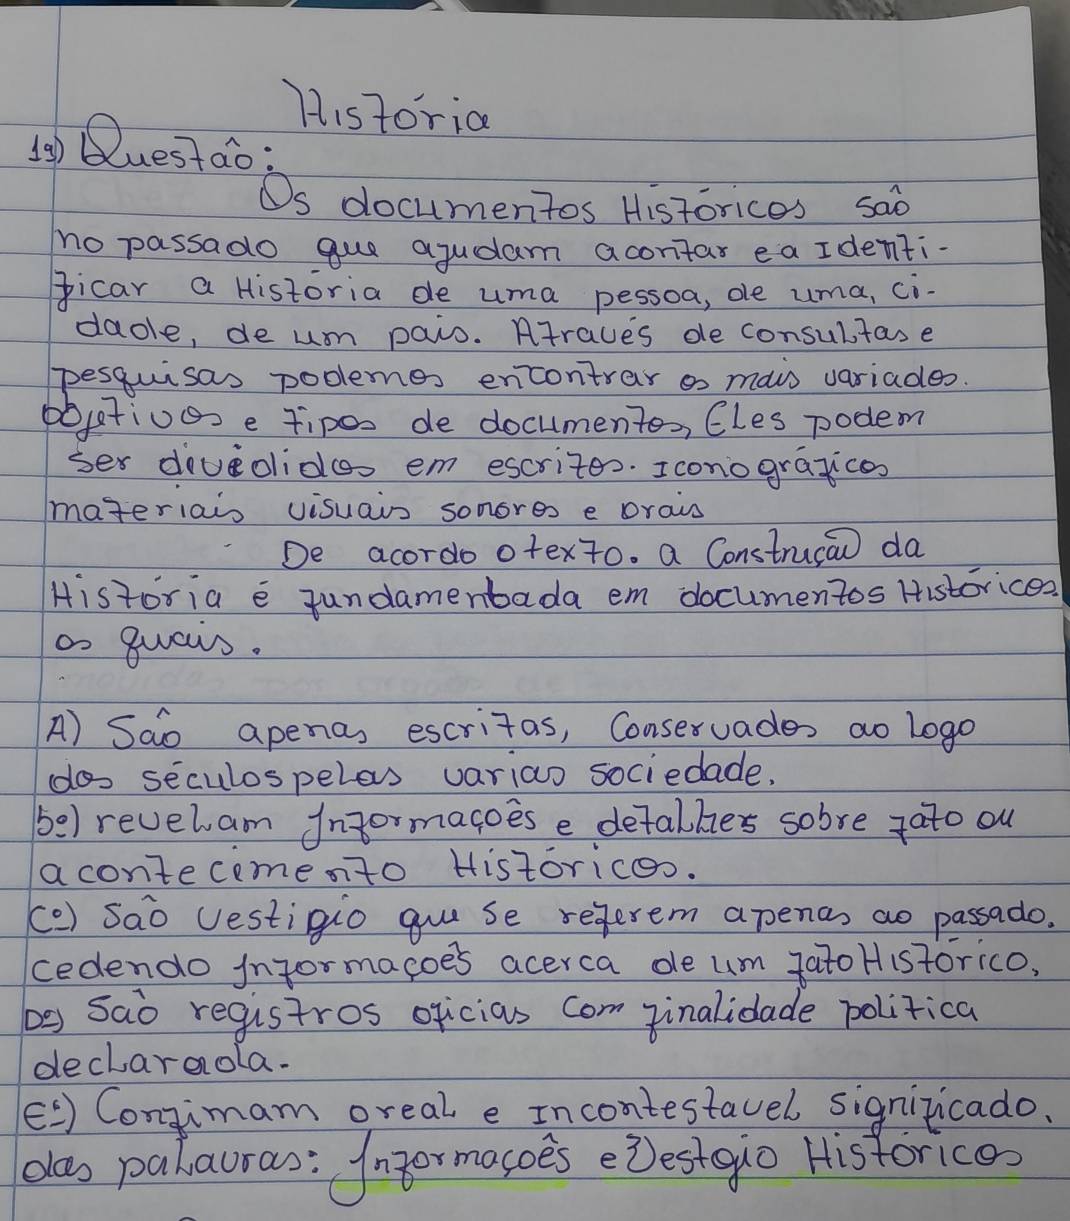 História
1ª) Questaô:
Os documentos Históricos saô
no passado que ajudam acontar e a Identi-
ficar a História de uma pessoa, de uma, ci-
dade, de um pais. Através de consultas e
pesquisas podemos encontrar os mais variados.
objetivos e tipos de documentos, Eles podem
ser divididos em escritos. Iconográficos
materiais visuais sonoros e orais
De acordo o texto. a Construçaõ da
História é fundamentada em documentos Históricos
os quais.
A) Saô apenas escritas, Conservados ao logo
dos séculos pelas varias sociedade.
bº) revelam Informaçoês e detalhes sobre fato ou
acontecimento Históricos.
Cº) Saò Vestigio que se referem apenas ao passado.
cedendo Informaçoês acerca de um fato Histórico,
Dº) Saò registros oficias Com finalidade politica
declarada.
Eº) Confimam o real e Incontestavel significado.
das palavras: Informaçoês e Vestgio Históricos